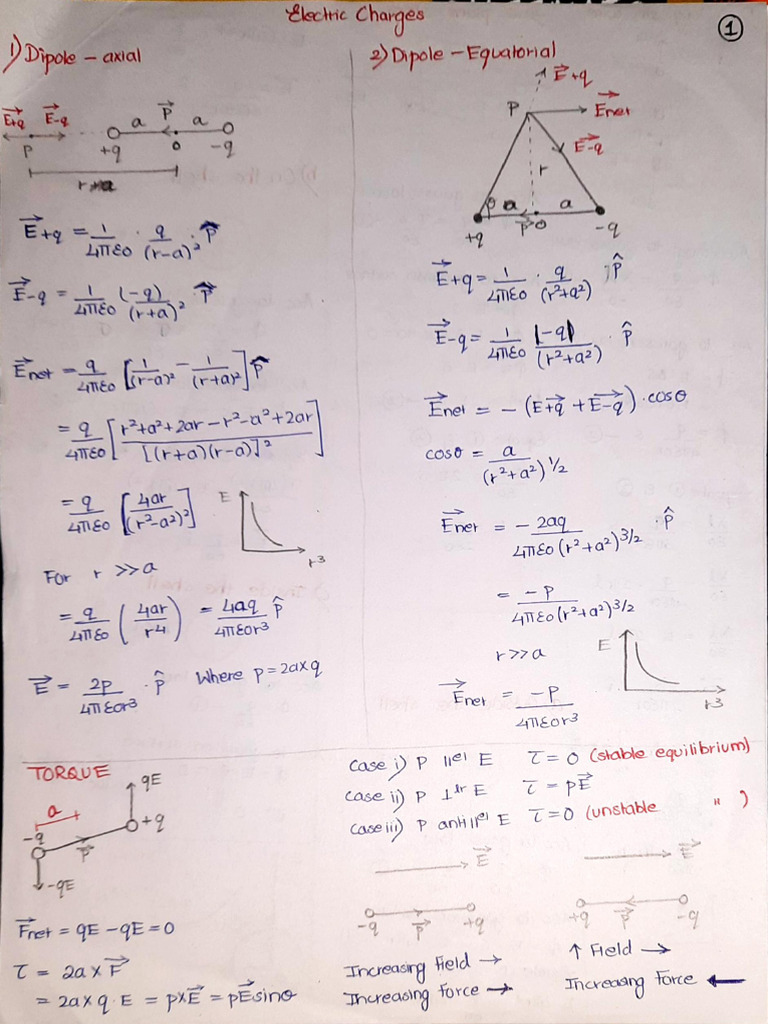 Electric Charges
1
1) Dipole – axial
E⃗+q E⃗-q a P⃗ a
P +q O -q
r
E⃗+q = 1/4πεo · q/(r-a)² · P̂
E⃗-q = 1/4πεo (-q)/(r+a)² · P̂
E⃗net = q/4πεo [1/(r-a)² - 1/(r+a)²] P̂
= q/4πεo [r²+a²+2ar-r²-a²+2ar/[(r+a)(r-a)]²]
= q/4πεo [4ar/(r²-a²)²]
E
r³
For r >>a
= q/4πεo (4ar/r4) = 4aq/4πεor³ P̂
E⃗ = 2p/4πεor³ · P̂ Where p = 2a×q
2) Dipole – Equatorial
E⃗+q
P E⃗net
E⃗-q
r
θ a a
+q P⃗ O -q
E⃗+q = 1/4πεo · q/(r²+a²) P̂
E⃗-q = 1/4πεo |-q|/(r²+a²) P̂
E⃗net = - (E⃗+q + E⃗-q) · cosθ
cosθ = a/(r²+a²)½
E⃗net = - 2aq/4πεo(r²+a²)3/2 P̂
= -P/4πεo(r²+a²)3/2
r>>a
E
r³
E⃗net = -P/4πεor³
TORQUE
qE
a
-q +q
P⃗
-qE
F⃗net = qE - qE = 0
τ = 2a × F⃗
= 2a × q · E = p×E⃗ = pE⃗sinθ
Case i) P ||el E τ = 0 (stable equilibrium)
Case ii) P ⊥lr E τ = pE⃗
Case iii) P anti||el E τ = 0 (unstable " )
E⃗
-q P⃗ +q
Increasing Field →
Increasing force →
E⃗
+q P⃗ -q
↑ Field →
Increasing Force ←